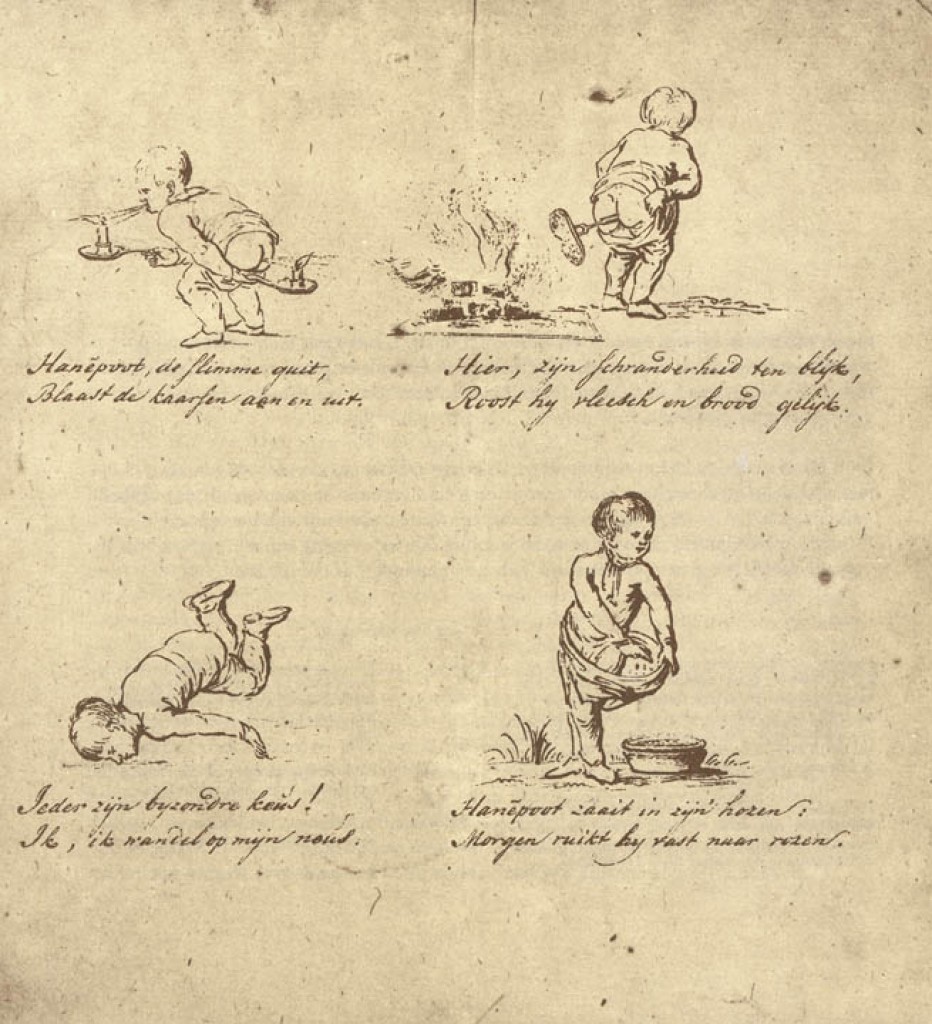 Hanēpoot, de slimme guit,
Blaast de kaarsen aan en uit.
Hier, zijn schranderheid ten blijk,
Roost hy vleesch en brood gelijk.
Ieder zijn byzondre keus!
Ik, ik wandel op mijn neus.
Hanēpoot zaait in zijn hozen:
Morgen ruikt hy vast naar rozen.